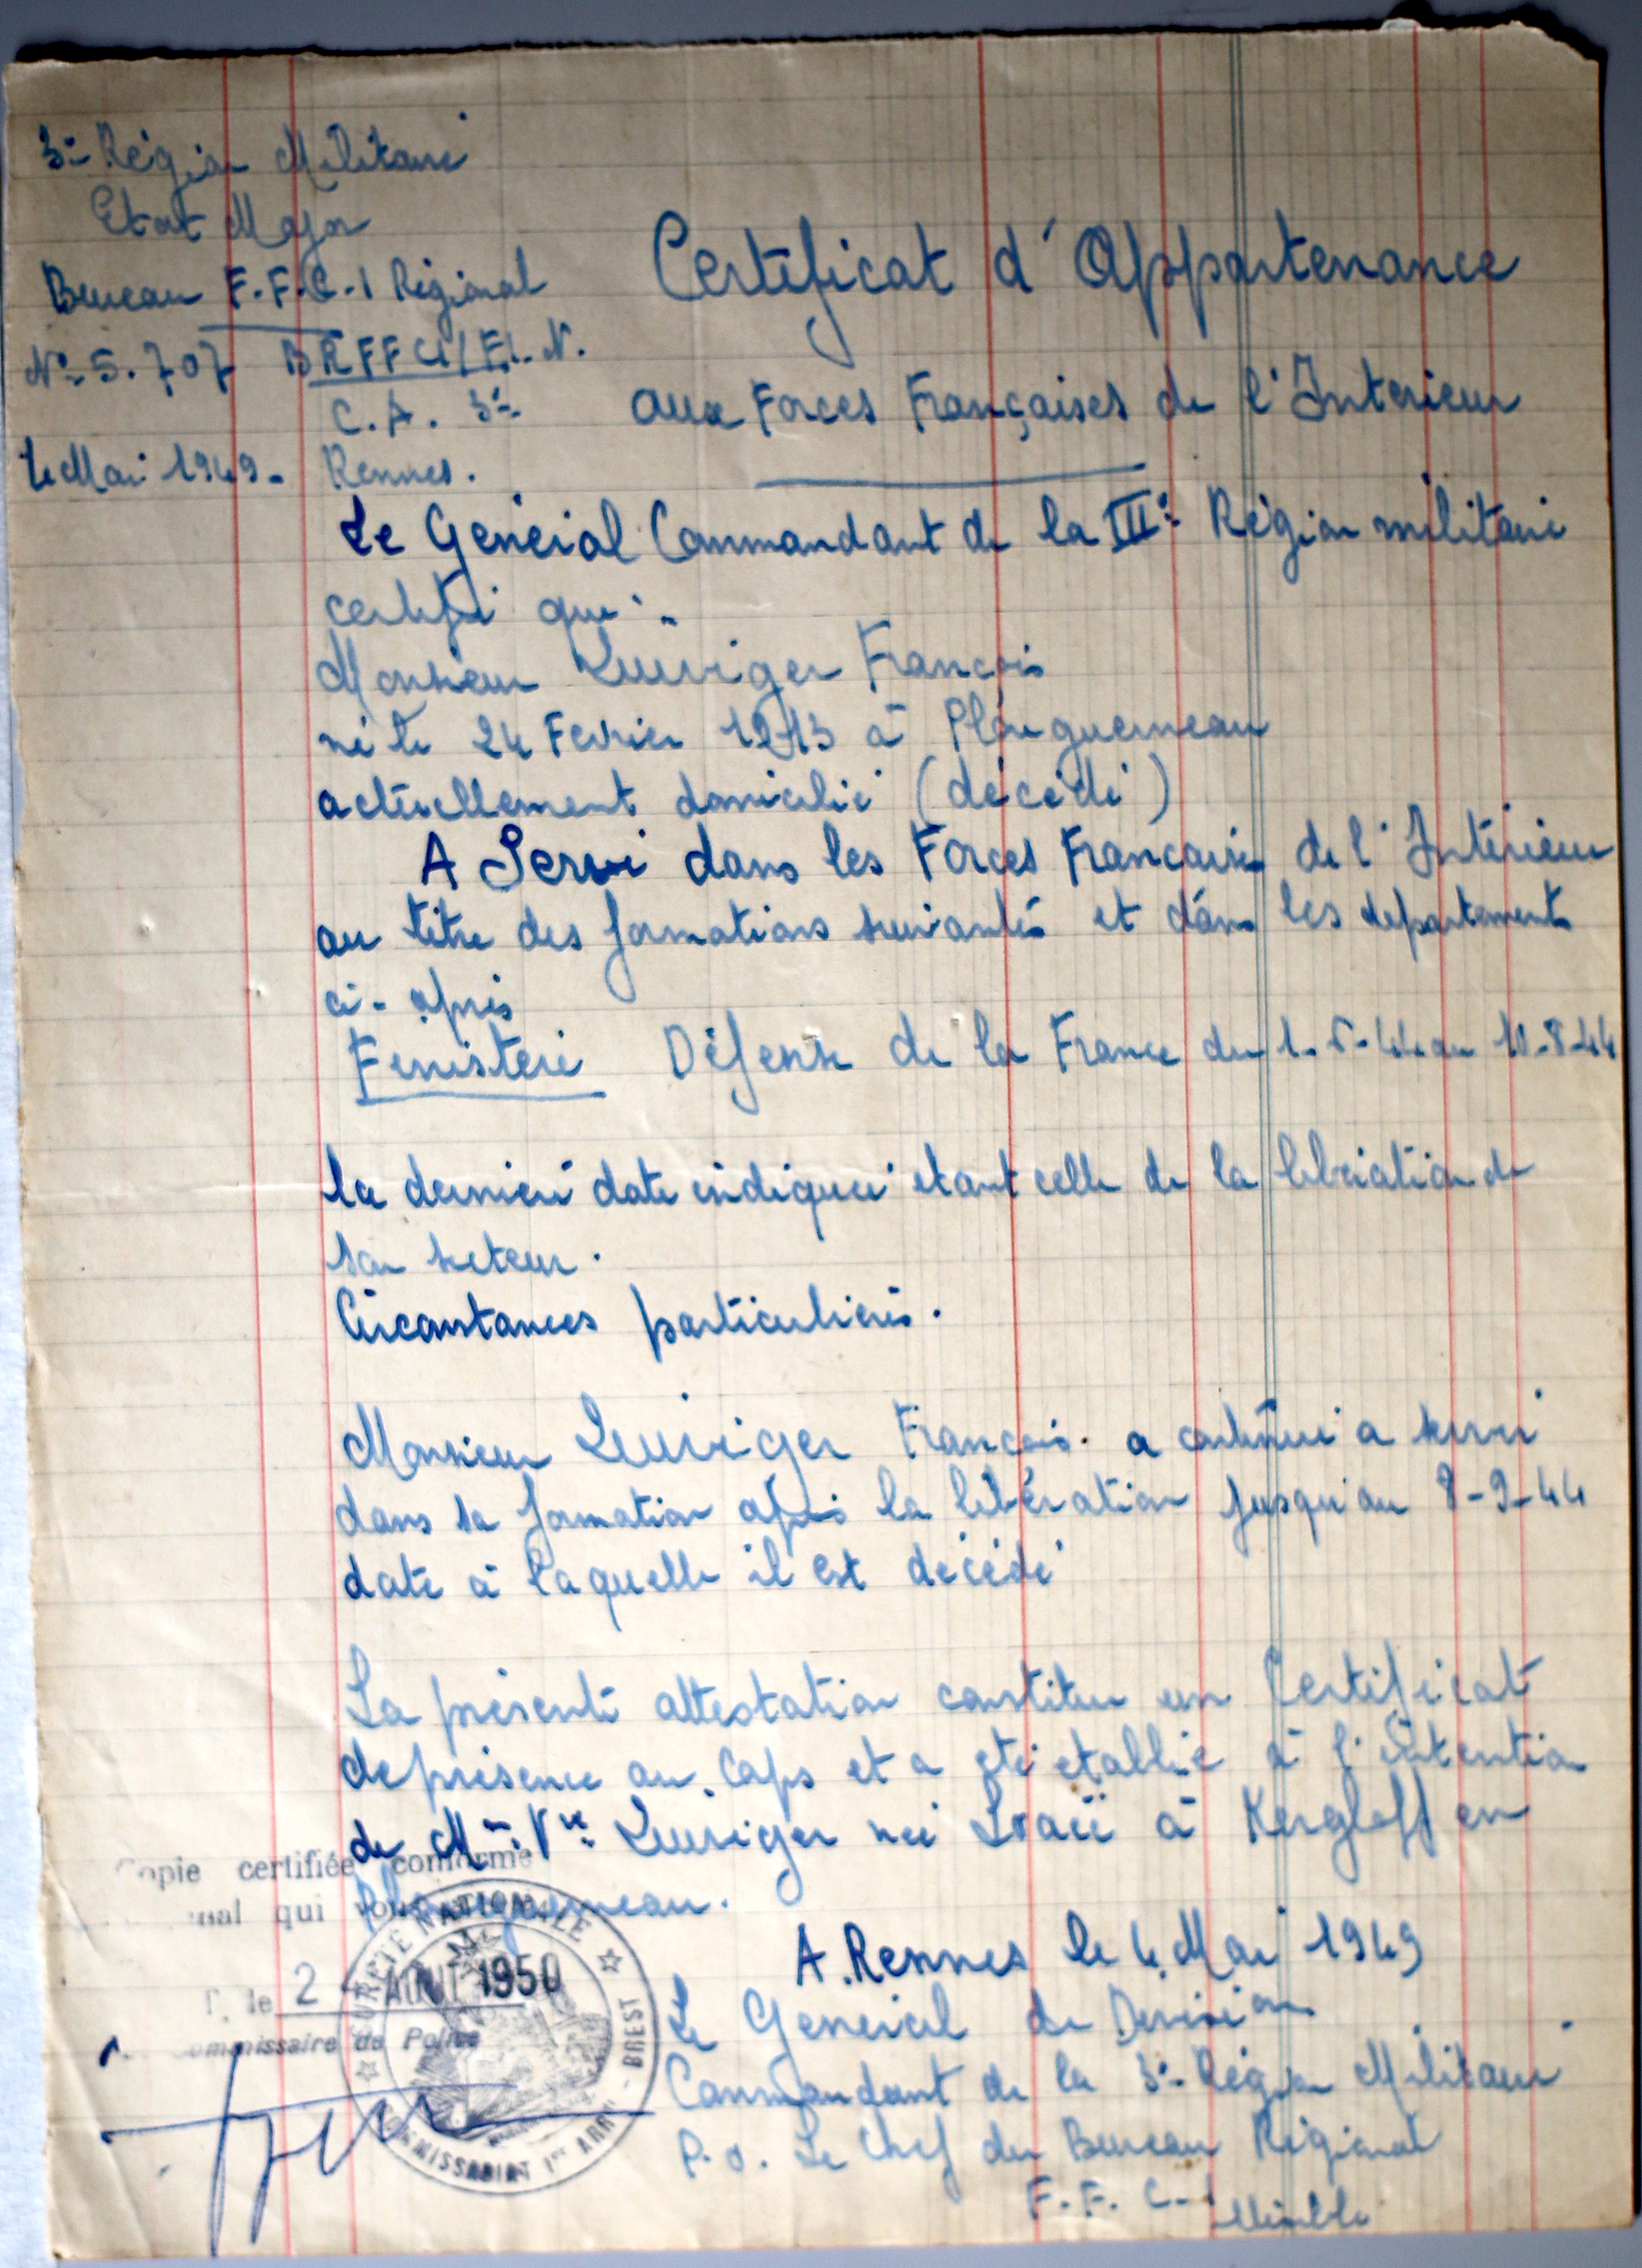 3e Région Militaire
Etat Major
Bureau F.F.C.I Régional
N° 5.707 BRFFCI/F.L.N.
C.A. 3e
4 Mai 1949. Rennes.
Certificat d'Appartenance
aux Forces Françaises de l'Interieur
Le Général Commandant de la IIIe Région militaire
certifie que :
Monsieur François
né le 24 Fevrier 1913 à Plouguerneau
actuellement domicilié (décédé)
A Servi dans les Forces Francaises de l'Intérieur
au titre des formations suivantes et dans les departements
ci-après
Finistère Défense de la France du 1-6-44 au 10-8-44
la dernière date indiquée etant celle de la libération de
son secteur.
Circonstances particulières.
Monsieur François a continué a servir
dans sa formation après la libération jusqu'au 8-9-44
date à laquelle il est décédé
La présente attestation constitue un Certificat
de présence au Corps et a été etablie à l'intention
de Mme Vve née à Kergloff en
Plouguerneau.
Copie certifiée conforme
qui
le 2 AOUT 1950
Commissaire de Police
SURETE NATIONALE
COMMISSARIAT 1er ARRt - BREST
A Rennes le 4 Mai 1949
Le Général de Division
Commandant de la 3e Région Militaire
P.O. Le Chef du Bureau Régional
F.F.C.I
illisible